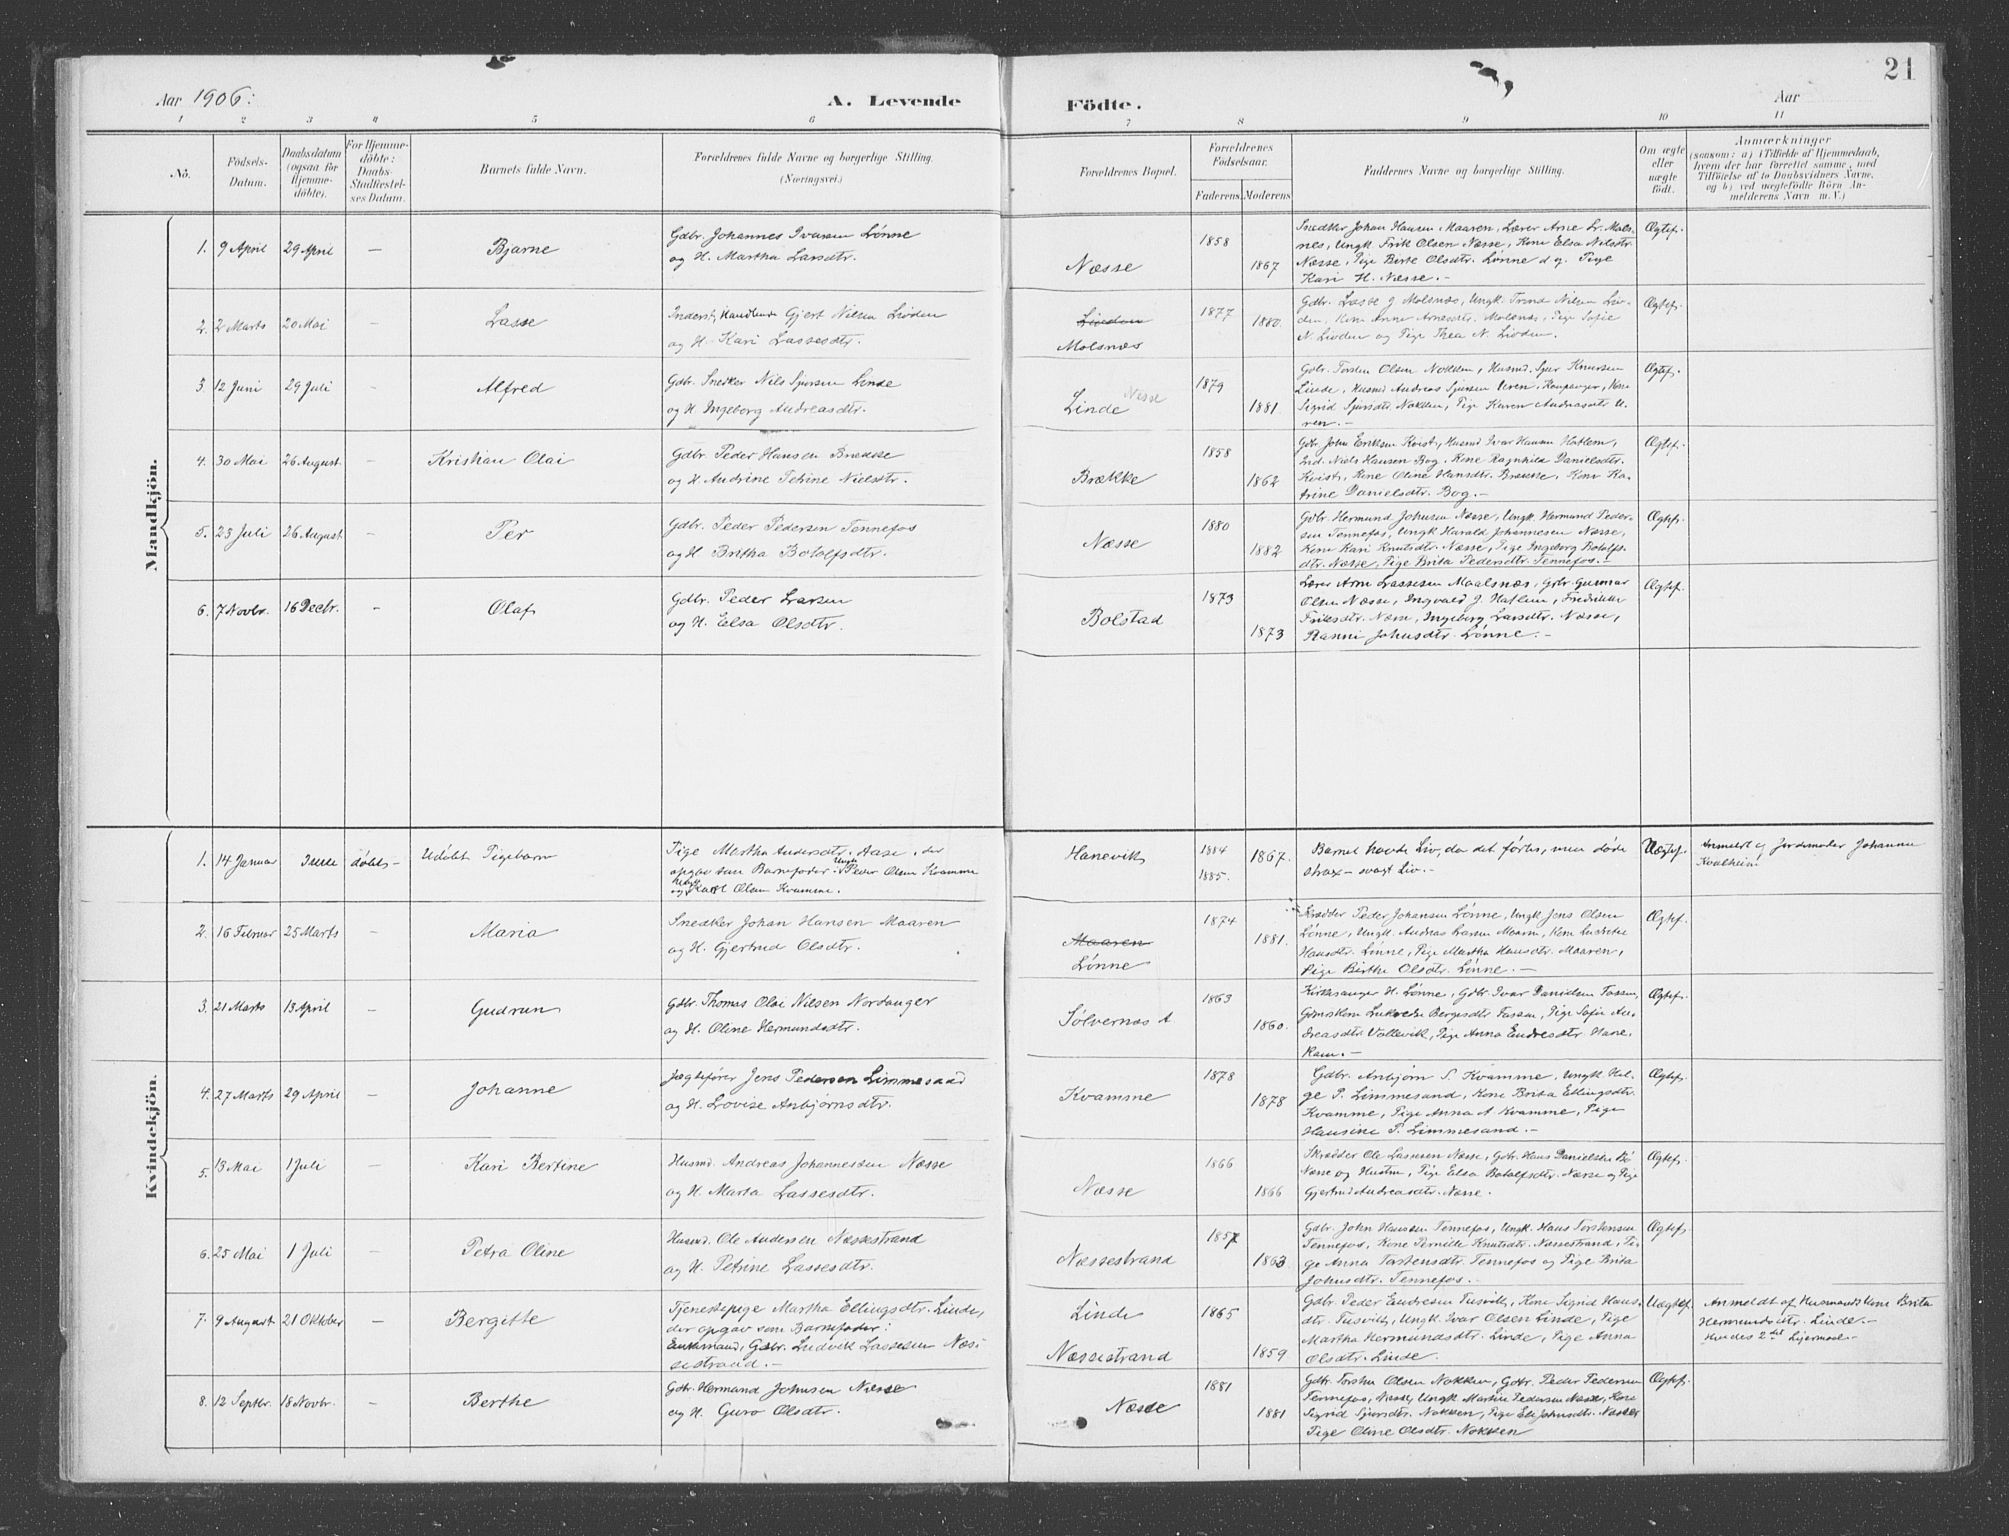 21
Aar 1906.
A. Levende Födte.
Aar
1 2 3 4 5 6 7 8 9 10 11
No.
Födsels-
Datum.
Daabsdatum
(ogsaa for
Hjemme-
döbte).
For Hjemme-
döbte:
Daabs-
Stadfæstel-
ses Datum.
Barnets fulde Navn.
Forældrenes fulde Navne og borgerlige Stilling.
(Næringsvei.)
Forældrenes Bopæl.
Forældrenes
Födselsaar.
Faderens. Moderens.
Faddernes Navne og borgerlige Stilling.
Om ægte
eller
uægte
födt.
Anmærkninger
(saasom: a) i Tilfælde af Hjemmedaab,
hvem der har forrettet samme, med
Tilföielse af to Daabsvidners Navne,
og b) ved uægtefödte Börn An-
melderens Navn m. V.)
Mandkjön.
1. 9 April 29 April – Bjarne
Gdbr. Johannes Ivarsen Lønne
og H. Martha Larsdtr.
Næsse
1858
1867
Snedker Johan Hansen Maaren, Lærer Arne Lr. Mols-
nes, Ungk. Erik Olsen Næsse, Kone Elsa Nilsdtr.
Næsse, Pige Birte Olsdtr. Lønne og Pige
Kari H. Næsse. –
Ægtef.
2. 2 Marts 20 Mai – Lasse
Inderst, Handlende Gjert Nilsen Livden
og H. Kari Lassesdtr.
Livden
Molsnæs
1877
1880.
Gdbr. Lasse J Molsnæs, Ungk. Trind Nilsen Liv-
den, Kone Anne Arnesdtr. Molsnæs, Pige Sofie
N. Livden og Pige Thea N. Livden.
Ægtef.
3. 12 Juni 29 Juli – Alfred
Gdbr. Snedker Nils Sjursen Linde
og H. Ingeborg Andreasdtr.
Næsse
Linde
1879
1881.
Gdbr. Torsten Olsen Nokken, Husmd. Sjur Knutsen
Linde, Husmd Andreas Sjursen Uren, Kaupanger, Kone
Sigrid Sjursdtr Nokken, Pige Karen Andreasdtr U-
ren. –
Ægtef.
4. 30 Mai 26 August – Kristian Olai
Gdbr. Peder Hansen Brække
og H. Andrine Petrine Nielsdtr.
Brække
1858
1862
Gdbr. John Eriksen Kvist, Husmd Ivar Hansen Hatlem,
Ind. Niels Hansen Bog, Kone Ragnhilda Danielsdtr.
Kvist, Kone Oline Hansdtr. Brække, Kone Ka-
trine Danielsdtr. Bog. –
Ægtef.
5. 23 Juli 26 August – Per
Gdbr. Peder Pedersen Tennefos
og H. Britha Botolfsdtr.
Næsse
1880
1882
Gdbr. Hermund Johnsen Næsse, Ungk. Hermund Peder-
sen Tennefos, Ungk Harald Johannesen Næsse,
Kone Kari Knutsdtr. Næsse, Pige Ingeborg Botolfs-
dtr. Næsse, Pige Brita Pedersdtr. Tennefos. –
Ægtef.
6. 7 Novbr. 16 Decbr. – Olaf
Gdbr. Peder Larsen
og H. Elsa Olsdtr.
Bolstad
1873
1873
Lærer Arne Lassesen Maalsnæs, Gdbr. Gunnar
Olsen Næsse, Ingvald J. Hatlem, Fredrikke
Eriksdtr. Næsse, Ingeborg Larsdtr. Næsse,
Ranni Johnsdtr. Lønne. –
Ægtef.
Kvindekjön.
1. 14 Januar Ikke døbt – Udøbt Pigebarn
Pige Martha Andersdtr. Aase, der
opgav som Barnefader: Ungk. Peder Olsen Kvamme
og Karl Olsen Kvamme.
Hanevik
1884
1885.
1867.
Barnet havde Liv, da det førtes, men døde
strax – svagt Liv. –
Uægtef.
Anmeldt af Jordemoder Johanne
Kvalheim
2. 16 Februar 25 Marts – Maria
Snedker Johan Hansen Maaren
og H. Gjertrud Olsdtr.
Maaren
Lønne
1874
1881.
Skrædder Peder Johansen Lønne, Ungk Jens Olsen
Lønne, Ungk. Andreas Larsen Maaren, Kone
Hansdtr. Lønne, Pige Martha Hansdtr. Maaren,
Pige Birthe Olsdtr. Lønne. –
Ægtef.
3. 21 Marts 13 April – Gudrun
Gdbr. Thomas Olai Nilsen Nordanger
og H. Oline Hermundsdtr.
Sølvernæs A
1863
1860.
Kirkesanger H. Lønne, Gdbr Ivar Danielsen Tassen,
Bergesdtr. Tassen, Pige Sofie An-
dreasdtr Vollevik, Pige Anna Endresdtr Hane-
kam. –
Ægtef.
4. 27 Marts 29 April – Johanne
Jægtefører Jens Pedersen Limmesand
og H. Lovise Anbjørnsdtr.
Kvamme
1878
1878
Gdbr. Anbjørn S. Kvamme, Ungk. Hel-
ge P. Limmesand, Kone Brita Ellingsdtr.
Kvamme, Pige Anna A Kvamme, Pige
Hansine P. Limmesand. –
Ægtef.
5. 13 Mai 1 Juli – Kari Bertine
Husmd. Andreas Johannessen Næsse
og H. Marta Lassesdtr.
Næsse
1866
1866
Skrædder Ole Lassesen Næsse, Gdbr. Hans Danielsen Bø
Næsse og Hustru, Pige Elsa Botolfsdtr. Næsse og Pige
Gjertrud Andreasdtr. Næsse.
Ægtef.
6. 25 Mai 1 Juli – Petra Oline
Husmd. Ole Andersen Næssestrand
og H. Petrine Lassesdtr.
Næssestrand
1857
1863.
Gdbr. John Hansen Tennefos, Ungk. Hans Torstensen
Tennefos, Kone Pernille Knutsdtr. Næssestrand, Pi-
ge Anna Torstensdtr. Tennefos og Pige Brita
Johnsdtr. Tennefos. –
Ægtef.
7. 9 August 21 Oktober – Bergitte
Tjenestepige Martha Ellingsdtr. Linde,
der opgav som Barnefader:
Enkemand, Gdbr. Ludvik Lassesen Næs-
sestrand. –
Linde
Næssestrand
1865
1859
Gdbr. Peder Endresen Tusvik, Kone Sigrid Hans-
dtr. Tusvik, Ungk Ivar Olsen Linde, Pige
Martha Hermundsdtr. Linde, Pige Anna
Olsdtr. Linde.
Uægtef.
Anmeldt af Husmands Kone Brita
Hermundsdtr. Linde. –
Hendes 2det Leiermaal –
8. 12 Septbr. 18 Novbr. – Berthe
Gdbr. Hermund Johnsen Næsse
og H. Guro Olsdtr.
Næsse
1881
1881
Gdbr. Torsten Olsen Nokken, Gdbr. Peder Pedersen
Tennefos, Næsse, Ungk. Martin Pedersen Næsse, Kone
Sigrid Sjursdtr. Nokken, Pige Eli Johnsdtr. Næsse,
Pige Oline Olsdtr. Nokken
Ægtef.